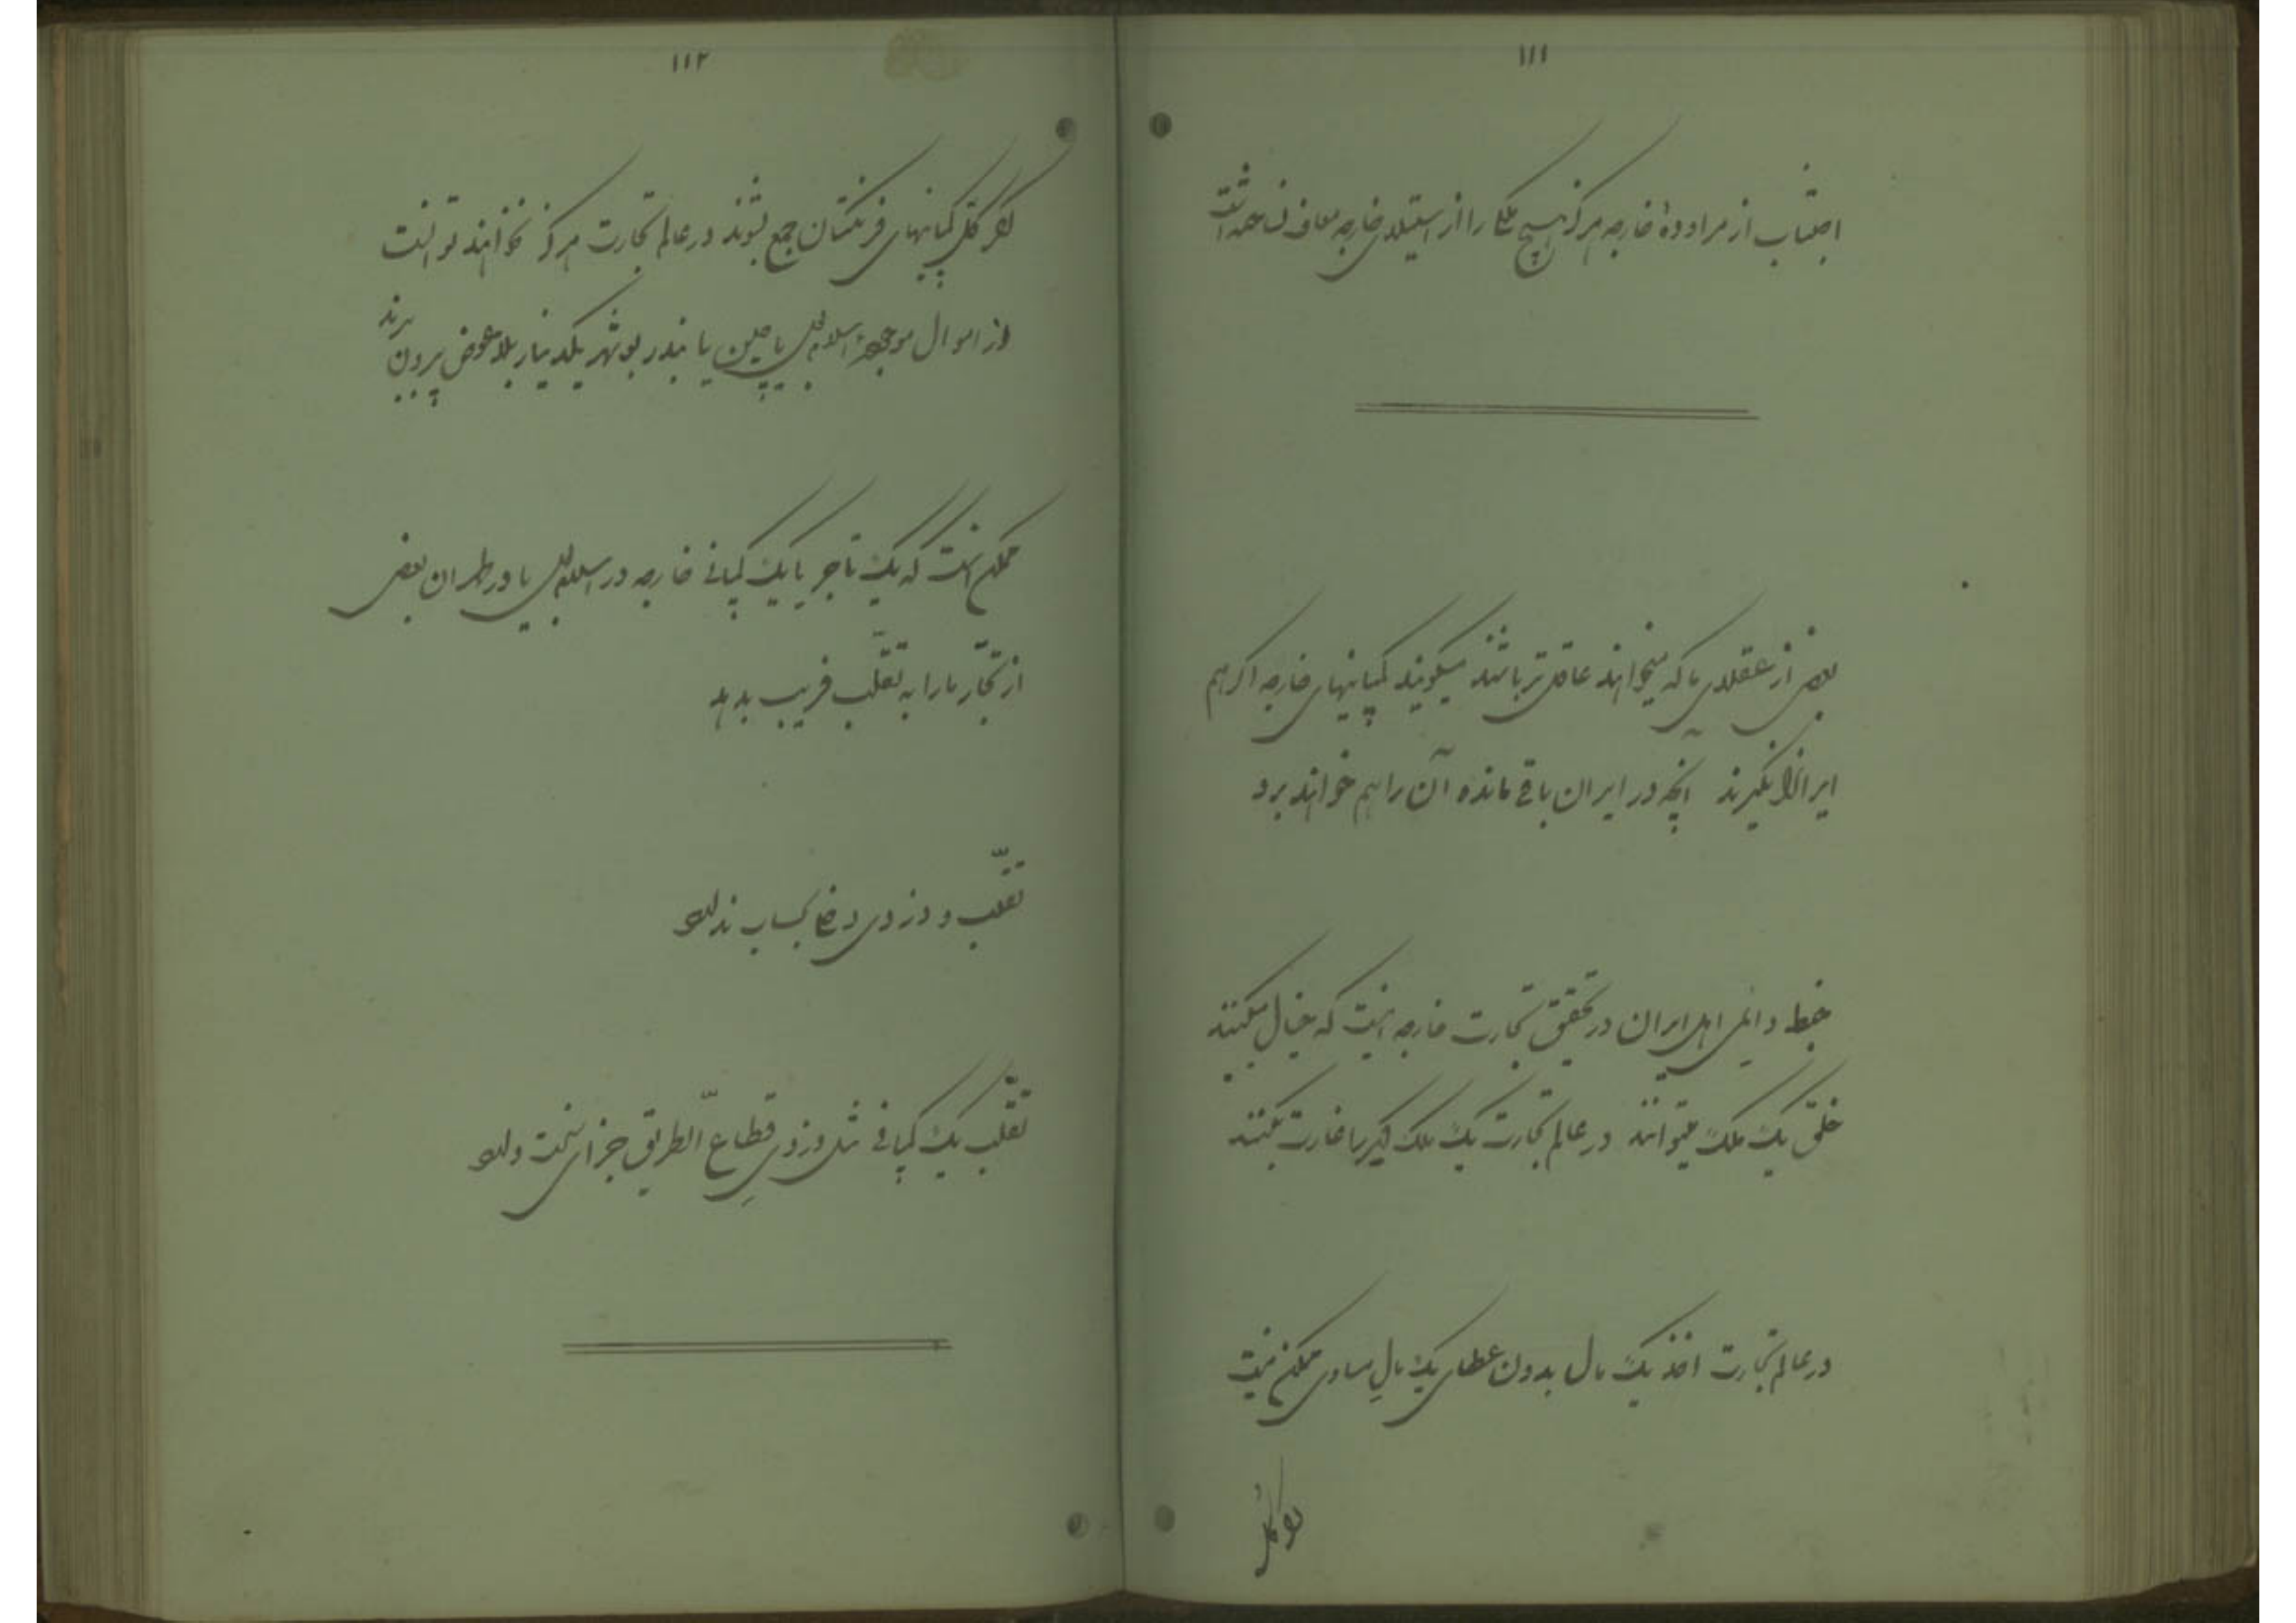 ۱۱۱
اجتناب از مراودهٔ خارجه هرگز هیچ ملکی را از استیلای خارجه معاف نساخته است
بعضی از عقلای ما که میخواهند عاقل‌تر باشند میگویند کمپانیهای خارجه اگر هم
ایرانرا نگیرند آنچه در ایران باقی مانده آن را هم خواهند برد
خبط دائمی اهل ایران در تحقیق تجارت خارجه اینست که خیال میکنند
خلق یک ملک میتوانند در عالم تجارت یک ملک دیگر را غارت بکنند
در عالم تجارت اخذ یک مال بدون عطای یک مالِ مساوی ممکن نیست
اگر کل
۱۱۲
اگر کلّ کمپانیهای فرنگستان جمع بشوند در عالم تجارت هرگز نخواهند توانست
از اموال موجودهٔ اسلامبل یا چین یا بندر بوشهر یکدینار بلاعوض بیرون برند
ممکن است که یک تاجر یا یک کمپانی خارجه در اسلامبل یا در طهران بعضی
از تجّار ما را به تقلّب فریب بدهد
تقلّب و دزدی دخلی بحساب ندارد
تقلّب یک کمپانی مثل دزدیِ قطاع الطریق جزای سخت دارد